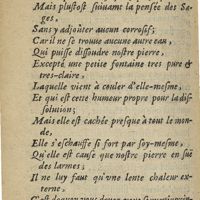 Mais plustost suivant la pensée des Sa-
ges,
Sans y adjoûter aucun corrosif;
Car il ne se trouve aucune autre eau,
Qui puisse dissoudre nostre pierre,
Excepté une petite fontaine tres pure &
tres-claire,
Laquelle vient à couler d'elle-mesme,
Et qui est cette humeur propre pour la dis-
solution;
Mais elle est cachée presque à tout le mon-
de,
Elle s'eschauffe si fort par soy-mesme,
Qu'elle est cause que nostre pierre en suë
des larmes;
Il ne luy faut qu'vne lente chaleur ex-
terne,